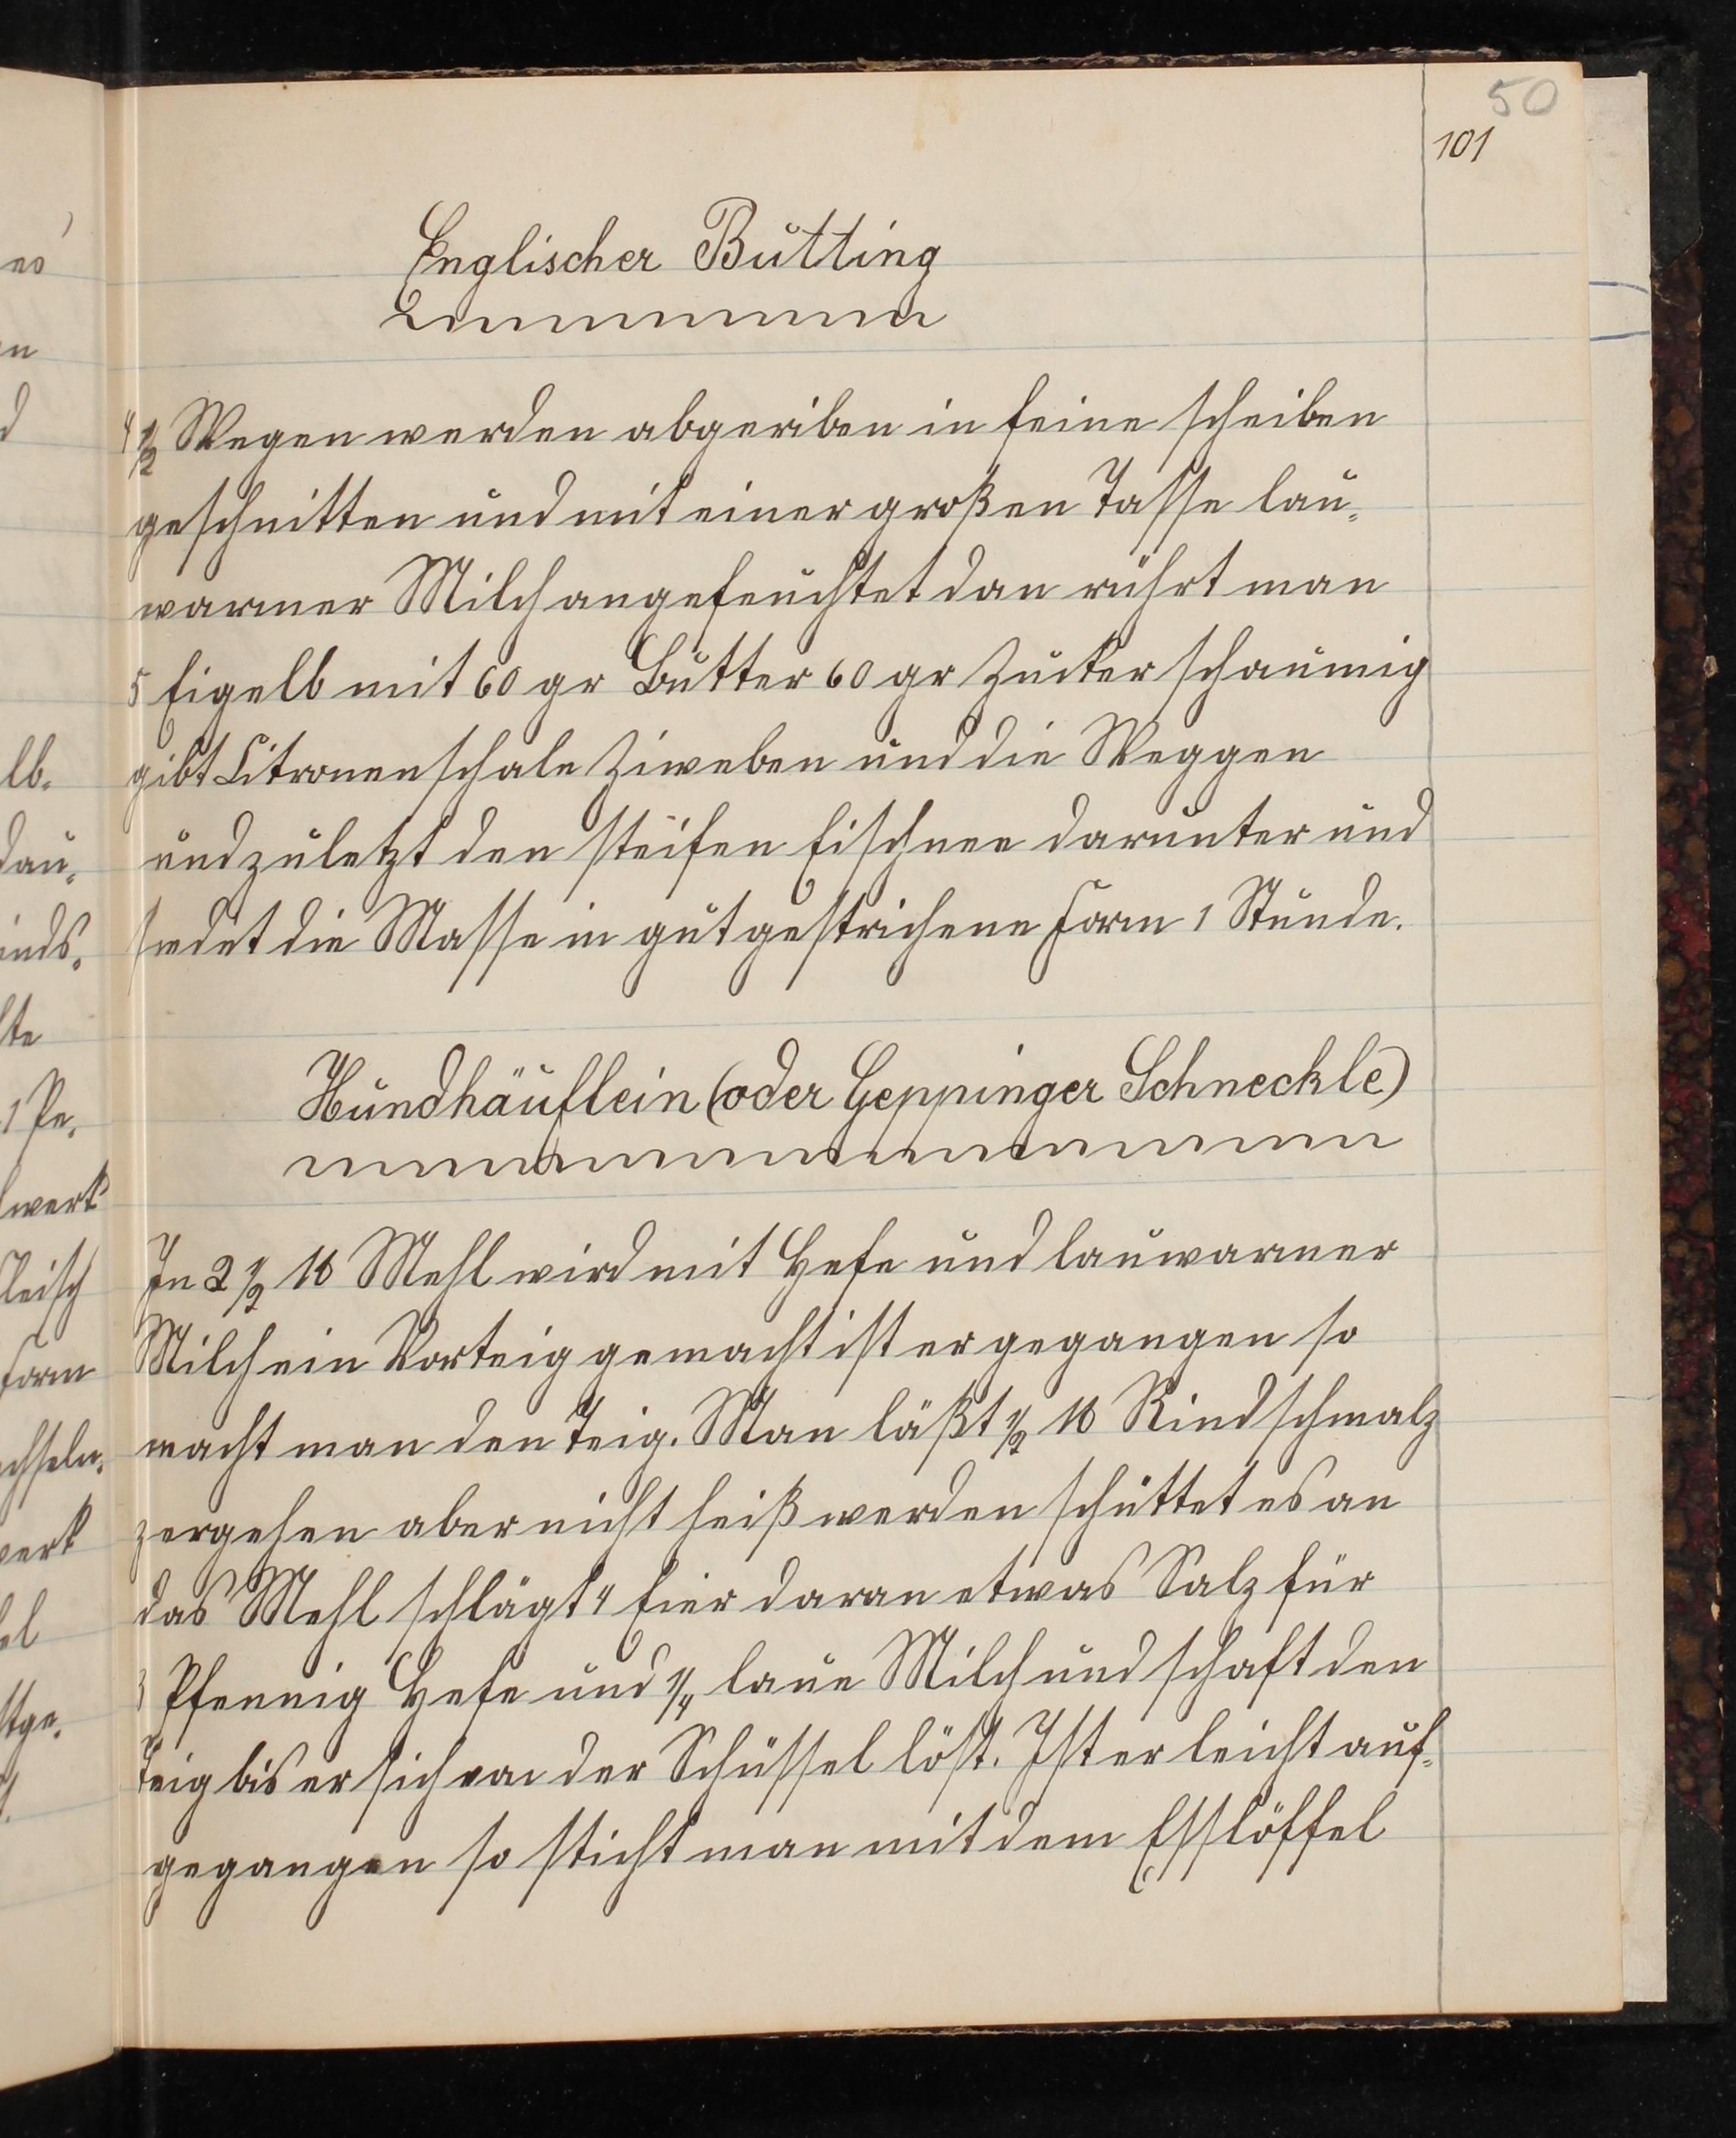 50
101
Englischer Butting
4 1/2 Wegen werden abgeriben in feine scheiben
geschnitten und mit einer großen Tasse lau-
warmer Milch angefeuchtet dan rührt man
5 Eigelb mit 60 gr Butter 60 gr Zucker schaumig
gibt Citronenschale Ziweben und die Weggen
und zuletzt den steifen Eischnee darunter und
siedet die Masse in gut gestrichene Form 1 Stunde.
Hundhäuflein (oder Geppinger Schneckle)
In 2 1/2 ℔ Mehl wird mit Hefe und lauwarmer
Milch ein Vorteig gemacht ist er gegangen so
macht man den Teig. Man läßt 1/2 ℔ Rindschmalz
zergehen aber nicht heiß werden schüttet es an
das Mehl schlägt 4 Eier daran etwas Salz für
3 Pfennig Hefe und 1/4 laue Milch und schaft den
Teig bis er sich von der Schüssel löst. Ist er leicht auf-
gegangen so sticht man mit dem Esslöffel